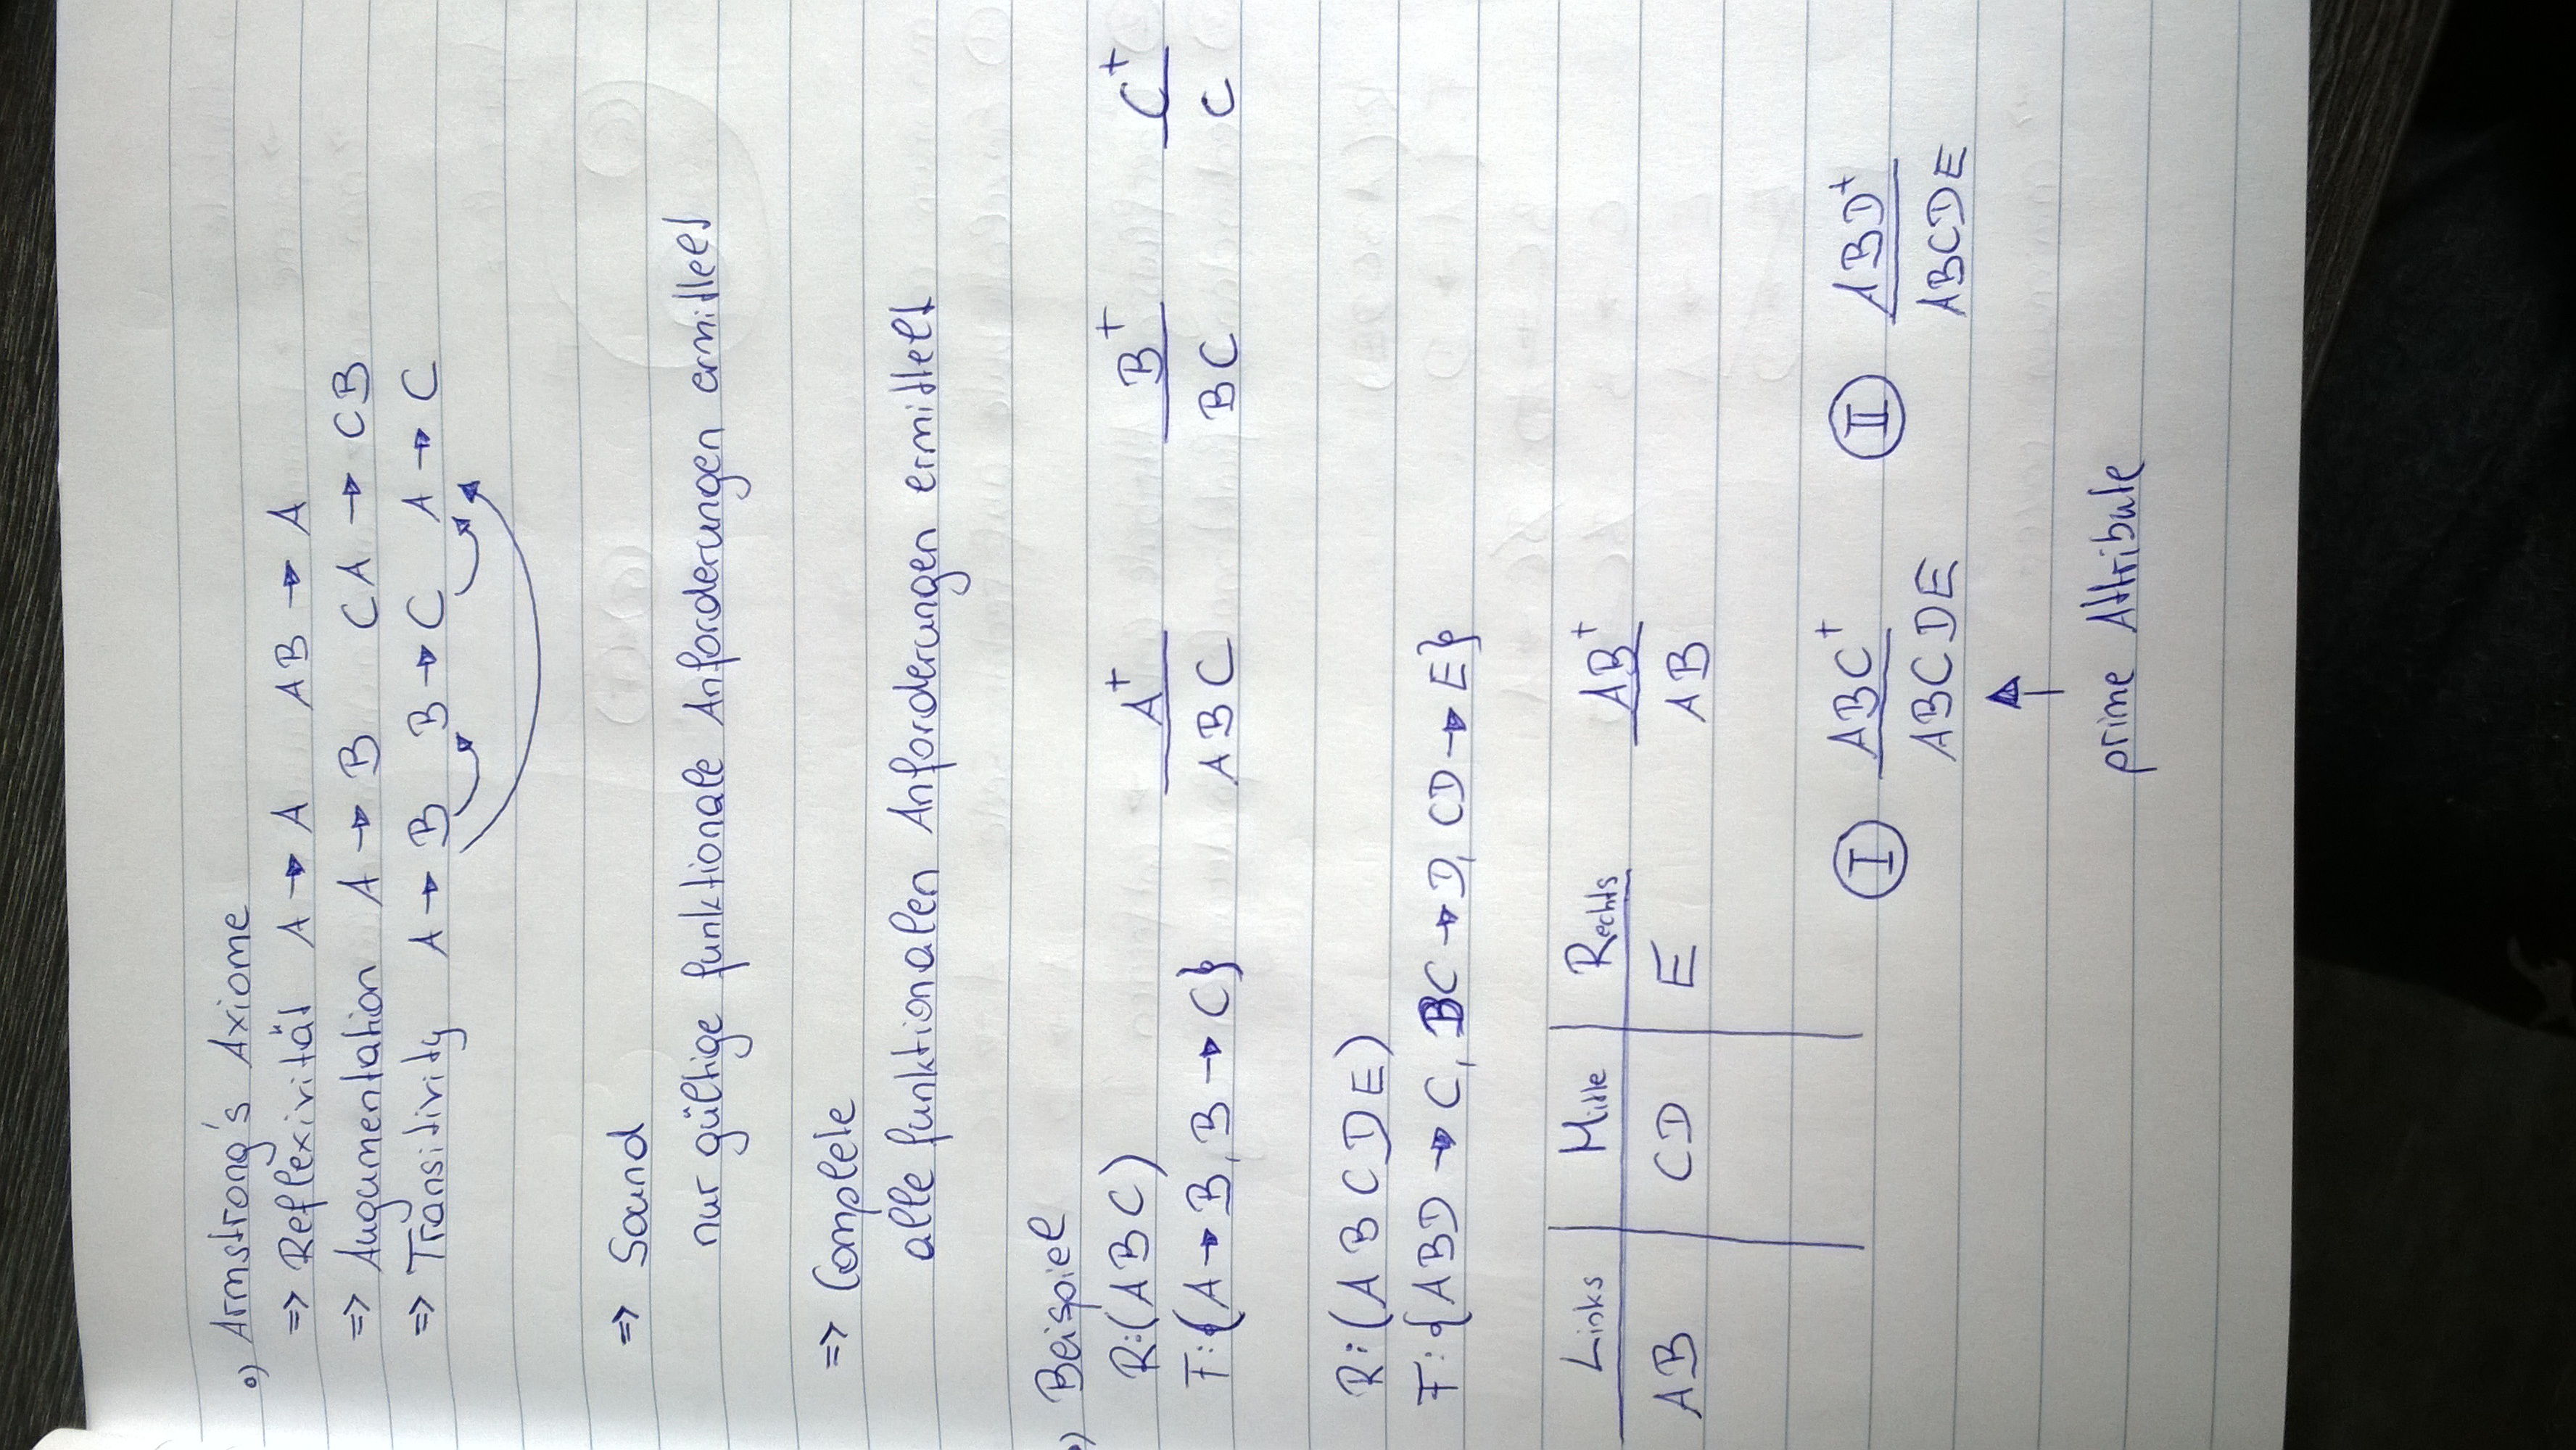 o) Armstrong's Axiome
⇒ Reflexivität A → A AB → A
⇒ Augumentation A → B CA → CB
⇒ Transitivity A → B B → C A → C
⇒ Sound
nur gültige funktionale Anforderungen ermittelt
⇒ Complete
alle funktionalen Anforderungen ermittelt
o) Beispiel
R:(ABC) A⁺ B⁺ C⁺
F:{A → B, B → C} ABC BC C
R:(ABCDE)
F:{ABD → C, BC → D, CD → E}
Links Mitte Rechts AB⁺
AB CD E AB
Ⅰ ABC⁺ Ⅱ ABD⁺
ABCDE ABCDE
↑
prime Attribute